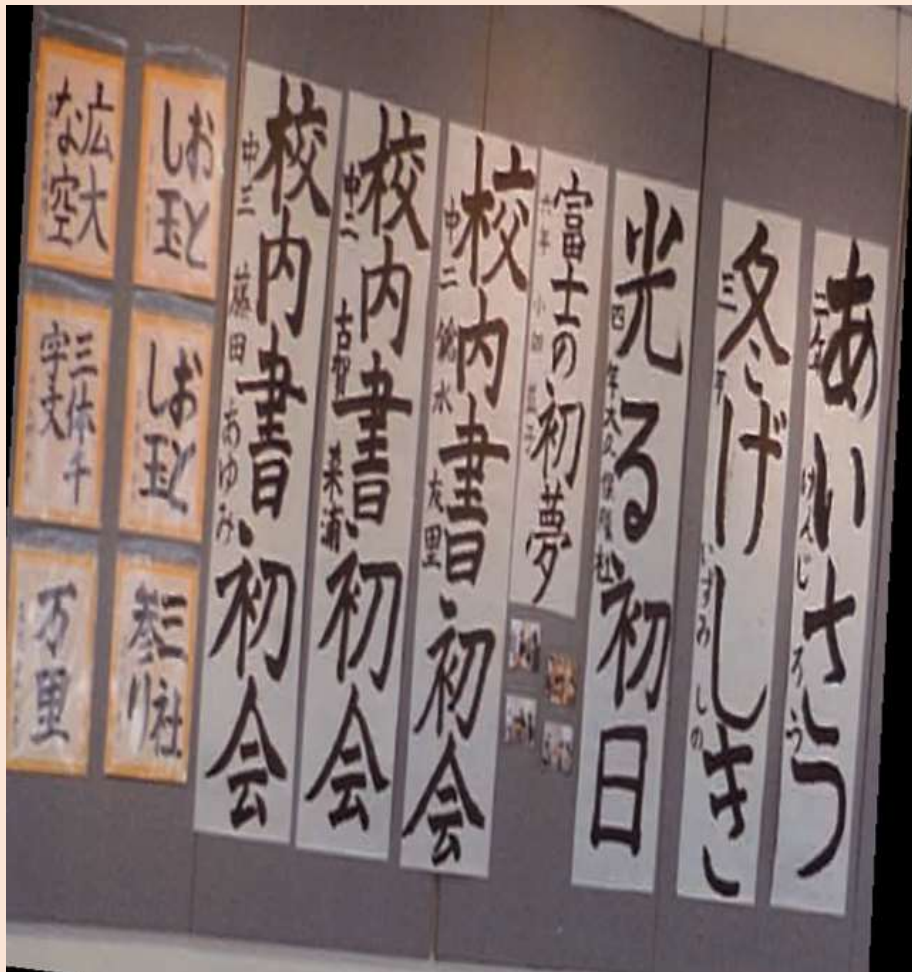 あいさつ
冬げしき
三年
いずみ しの
光る初日
四年
富士の初夢
六年
校内書初会
中二
友里
校内書初会
中二 古賀 菜浦
校内書初会
中三 藤田 あゆみ
おと
し玉
おと
し玉
三社
参り
広大
な空
三体千
字文
万里